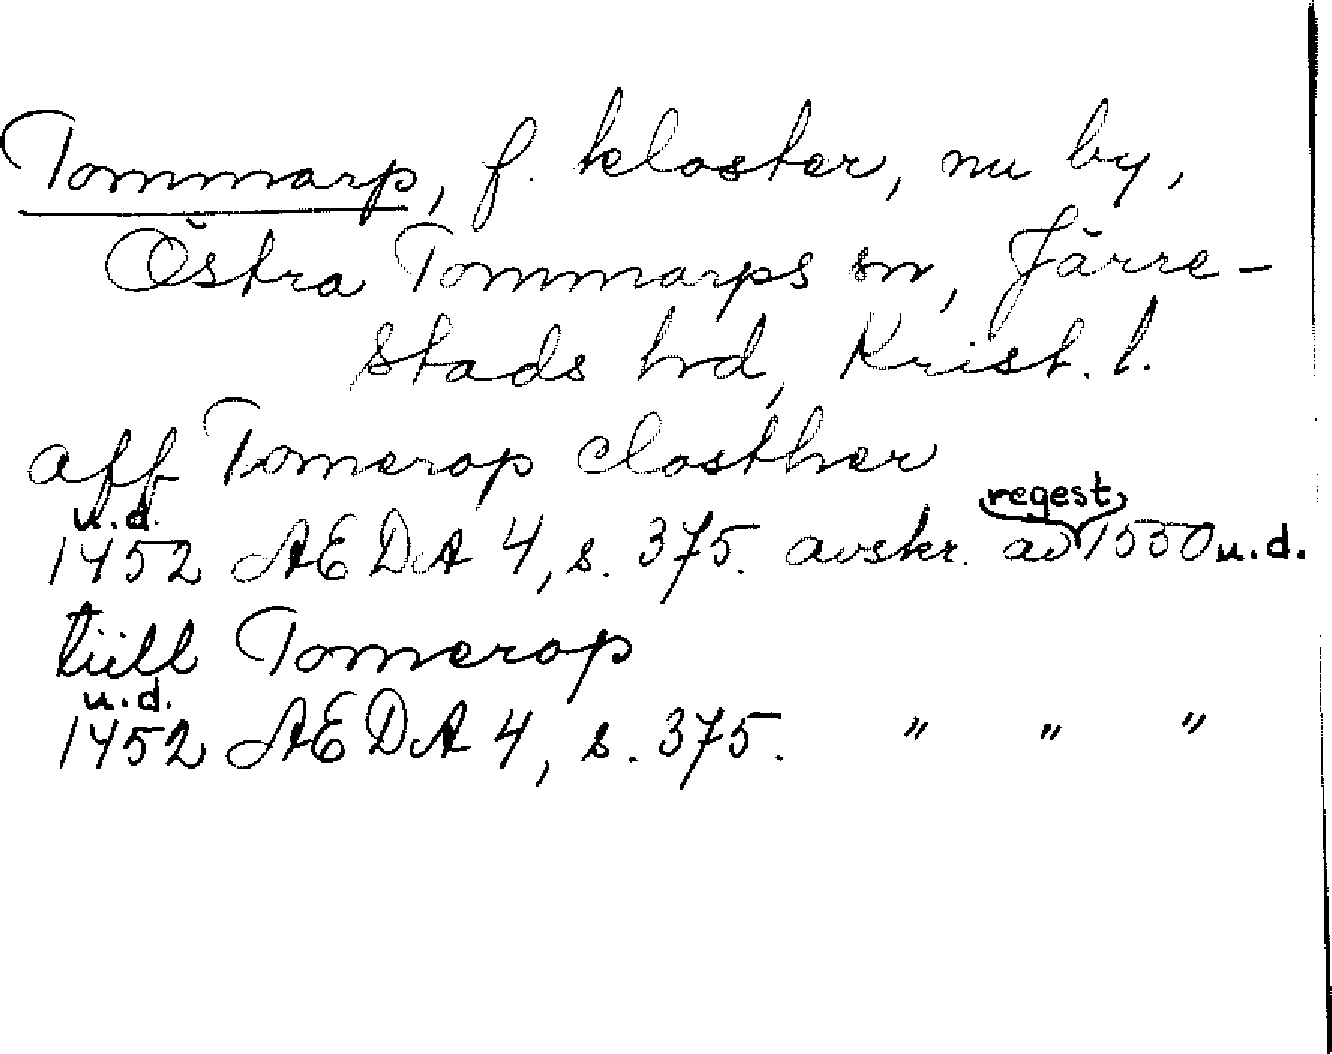 Tommarp, f. kloster, nu by,
Östra Tommarps sn, Järre-
stads hd, Krist. l.
aff Tomerop closther
u.d. regest
1452 AEDA 4, s. 375. avskr. av 1550 u.d.
tiill Tomerop
u.d.
1452 AEDA 4, s. 375. " " "